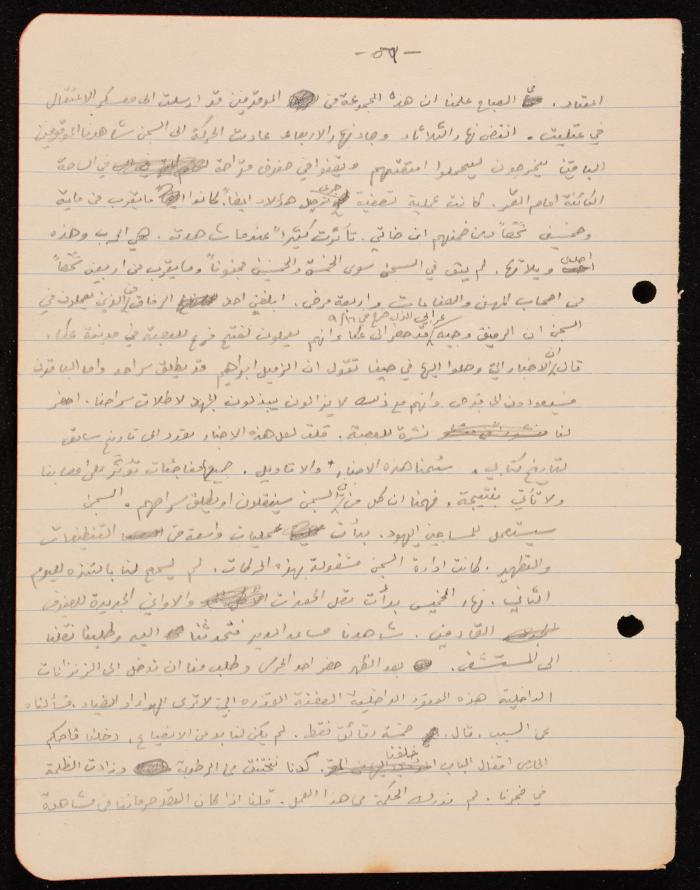 - ٥٣ -
المعتاد. الصباح علمنا ان هذه المجموعة من الموقوفين قد ارسلت الى معسكر الاعتقال
في عتليت. انقضى نهار الثلاثاء وجاء نهار الاربعاء عادت الحركة الى السجن شاهدنا الموقوفين
الباقين يخرجون ليحملوا امتعتهم ويقفوا في صفوف متراصة في الساحة
الكائنة امام القبر. كانت عملية تصفية جرى ترحيل هؤلاء ايضاً. كانوا ما يقرب من ماية
وخمسين شخصاً ومن ضمنهم ابن خالتي. تأثرت كثيراً عندما شاهدته. هي الحرب وهذه
احدى ويلاتها. لم يبق في السجن سوى الخمسة والخمسين مجنوناً وما يقرب من اربعين شخصاً
من اصحاب المهن والصناعات واربعة مرضى. ابلغني احد الرفاق الذين يعملون في
السجن ان الرفيق وجيه قد حضر الى عكا وانهم يعملون لفتح فرع للعصبة في مدينة عكا.
قال ان الاخبار التي وصلوا اليها في حيفا تقول ان الزميل ابراهيم قد يطلق سراحه واما الباقون
فسيعودون الى قبرص وانهم مع ذلك لا يزالون يبذلون الجهد لاطلاق سراحنا. احضر
لنا نشرة للعصبة. قلت لعل هذه الاخبار تعود الى تاريخ سابق
لتاريخ كتابي. سئمنا هذه الاخبار والاقاويل. جميع المفاجئات تؤثر على اعصابنا
ولا تأتي بنتيجة. فهمنا ان كل من في السجن سينقلون او يطلق سراحهم. السجن
سيستعمل للمساجين اليهود. بدأت عمليات واسعة من التنظيفات
والتطهير. كانت ادارة السجن مشغولة بهذه الحركات. لم يسمح لنا بالتنزه لليوم
الثاني. نهار الخميس بدأت نقل المعدات والاواني الجديدة للضيوف
القادمين. شاهدنا مساعد المدير فتحدثنا اليه وطلبنا نقلنا
الى المستشفى. بعد الظهر حضر احد الحرس وطلب منا ان ندخل الى الزنزانات
الداخلية هذه الداخلية العفنة القذرة التي لا ترى الهواء او الضياء. سألناه
عن السبب. قال. خمسة دقائق فقط. لم يكن لنا بد من الانصياع. دخلنا فأحكم
الحارس اقفال الباب خلفنا. كدنا نختنق من الرطوبة وزادت الظلمة
في ضجرنا. لم ندرك الحكمة من هذا العمل. قلنا اذا كان القصد حرماننا من مشاهدة